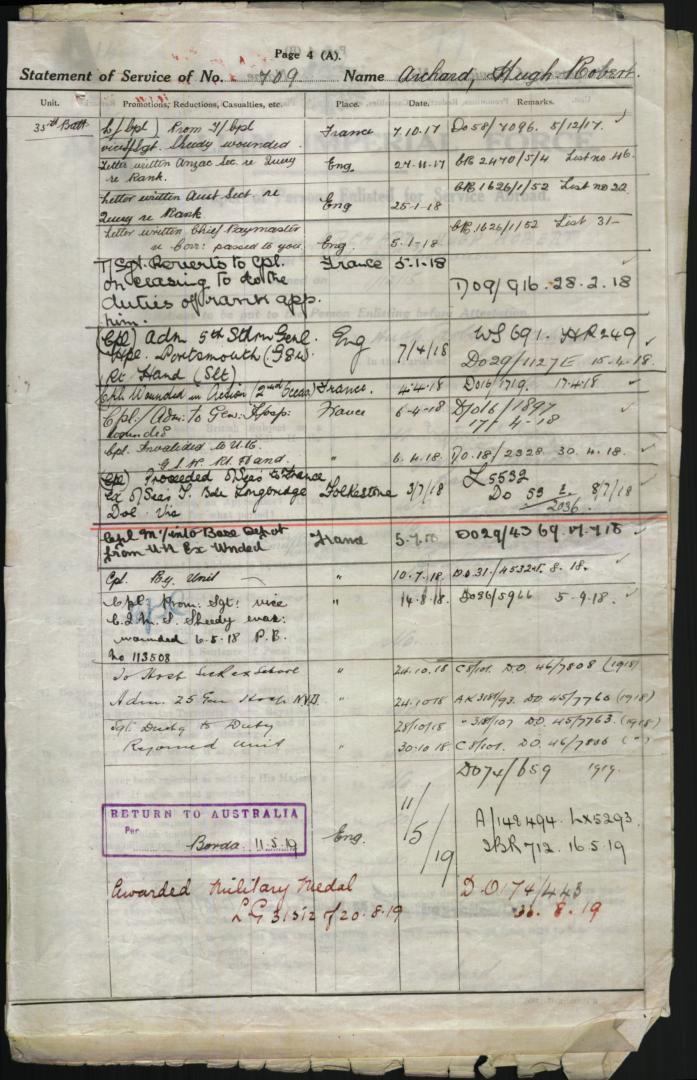 Page 4 (A).
Statement of Service of No. 709 Name Archard, Hugh Robert.
Unit. Promotions, Reductions, Casualties, etc. Place. Date. Remarks.
33rd Battn
Prom T/Cpl France 7.10.17 Do 58/7096. 5/12/17.
vice Sgt. Sheedy wounded.
Letter written Anzac Sec. re Query Eng. 27.11.17 CR 2470/5/4 List no 46.
re Rank.
Letter written Aust Sect. re Eng 25-1-18 CR 1626/1/52 List no 22
Query re Rank
Letter written Chief Paymaster CR 1626/1/52 List 31-
re Corr: passed to you. Eng. 5-1-18
T/Sgt Reverts to Cpl. France 5-1-18
on ceasing to do the DO9/916. 28.2.18
duties of rank app.
him.
(Cpl) Adm 5th Sthrn Genl. Eng 7/4/18 WS 691. HR 249
Hpl. Portsmouth (GSW. DO29/1127E 15.4.18.
Rt. Hand (Slt)
Cpl. Wounded in Action (2nd Occas) France. 4-4-18 DO16/1719. 17-4-18
Cpl. Adm: to Gen: Hosp: France 6-4-18 DO16/1897
wounded 17-4-18
Cpl. Invalided to U.K. " 6.4.18 Do.18/2328 30.4.18.
G.S.W. Rt. Hand.
(Cpl) Proceeded O/Seas to France L5532
Ex O/Seas T. Bde Longbridge Folkestone 3/7/18 Do 53 8/7/18
Dvl. via 2036.
Cpl M/into Base Depot France 5-7-18 DO29/4369. 17-7-18
from U.K Ex Wnded
Cpl. Rej. Unit " 10.7.18. 8.18.
Cpl. Prom: Sgt: vice " 14-8-18. Do36/5966 5-9-18.
C.Q.M.S. Sheedy evac:
wounded 6.5.18 P.B.
No 113508
To Hosp Sick ex School " 24.10.18 C8/101. D.O. 46/7808 (1918)
Adm. 25 Gen Hosp NYD " 24.10.18 AK 3181/93. DO. 45/7760 (1918)
Sgt Disch to Duty " 28/10/18 " 3181/107 D.O. 45/7763. (1918)
Rejoined unit " 30.10.18 C8/101. D.O. 46/7806 (")
DO74/659 1919.
RETURN TO AUSTRALIA
Per
Borda. 11.5.19 Eng. 11/5/19 A/148494. LX5293.
3BR712. 16.5.19
Awarded Military Medal D.O174/443
LG 31512 of 20.8.19 8.19